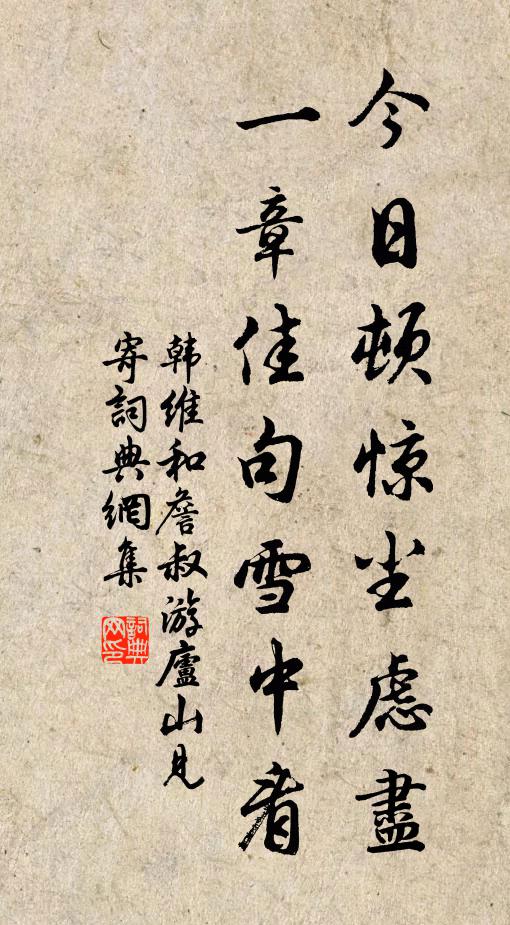 今日顿惊尘虑盡
一章佳句雪中看
韩维和詹叔游廬山见
寄詞典網集
詞典
网印